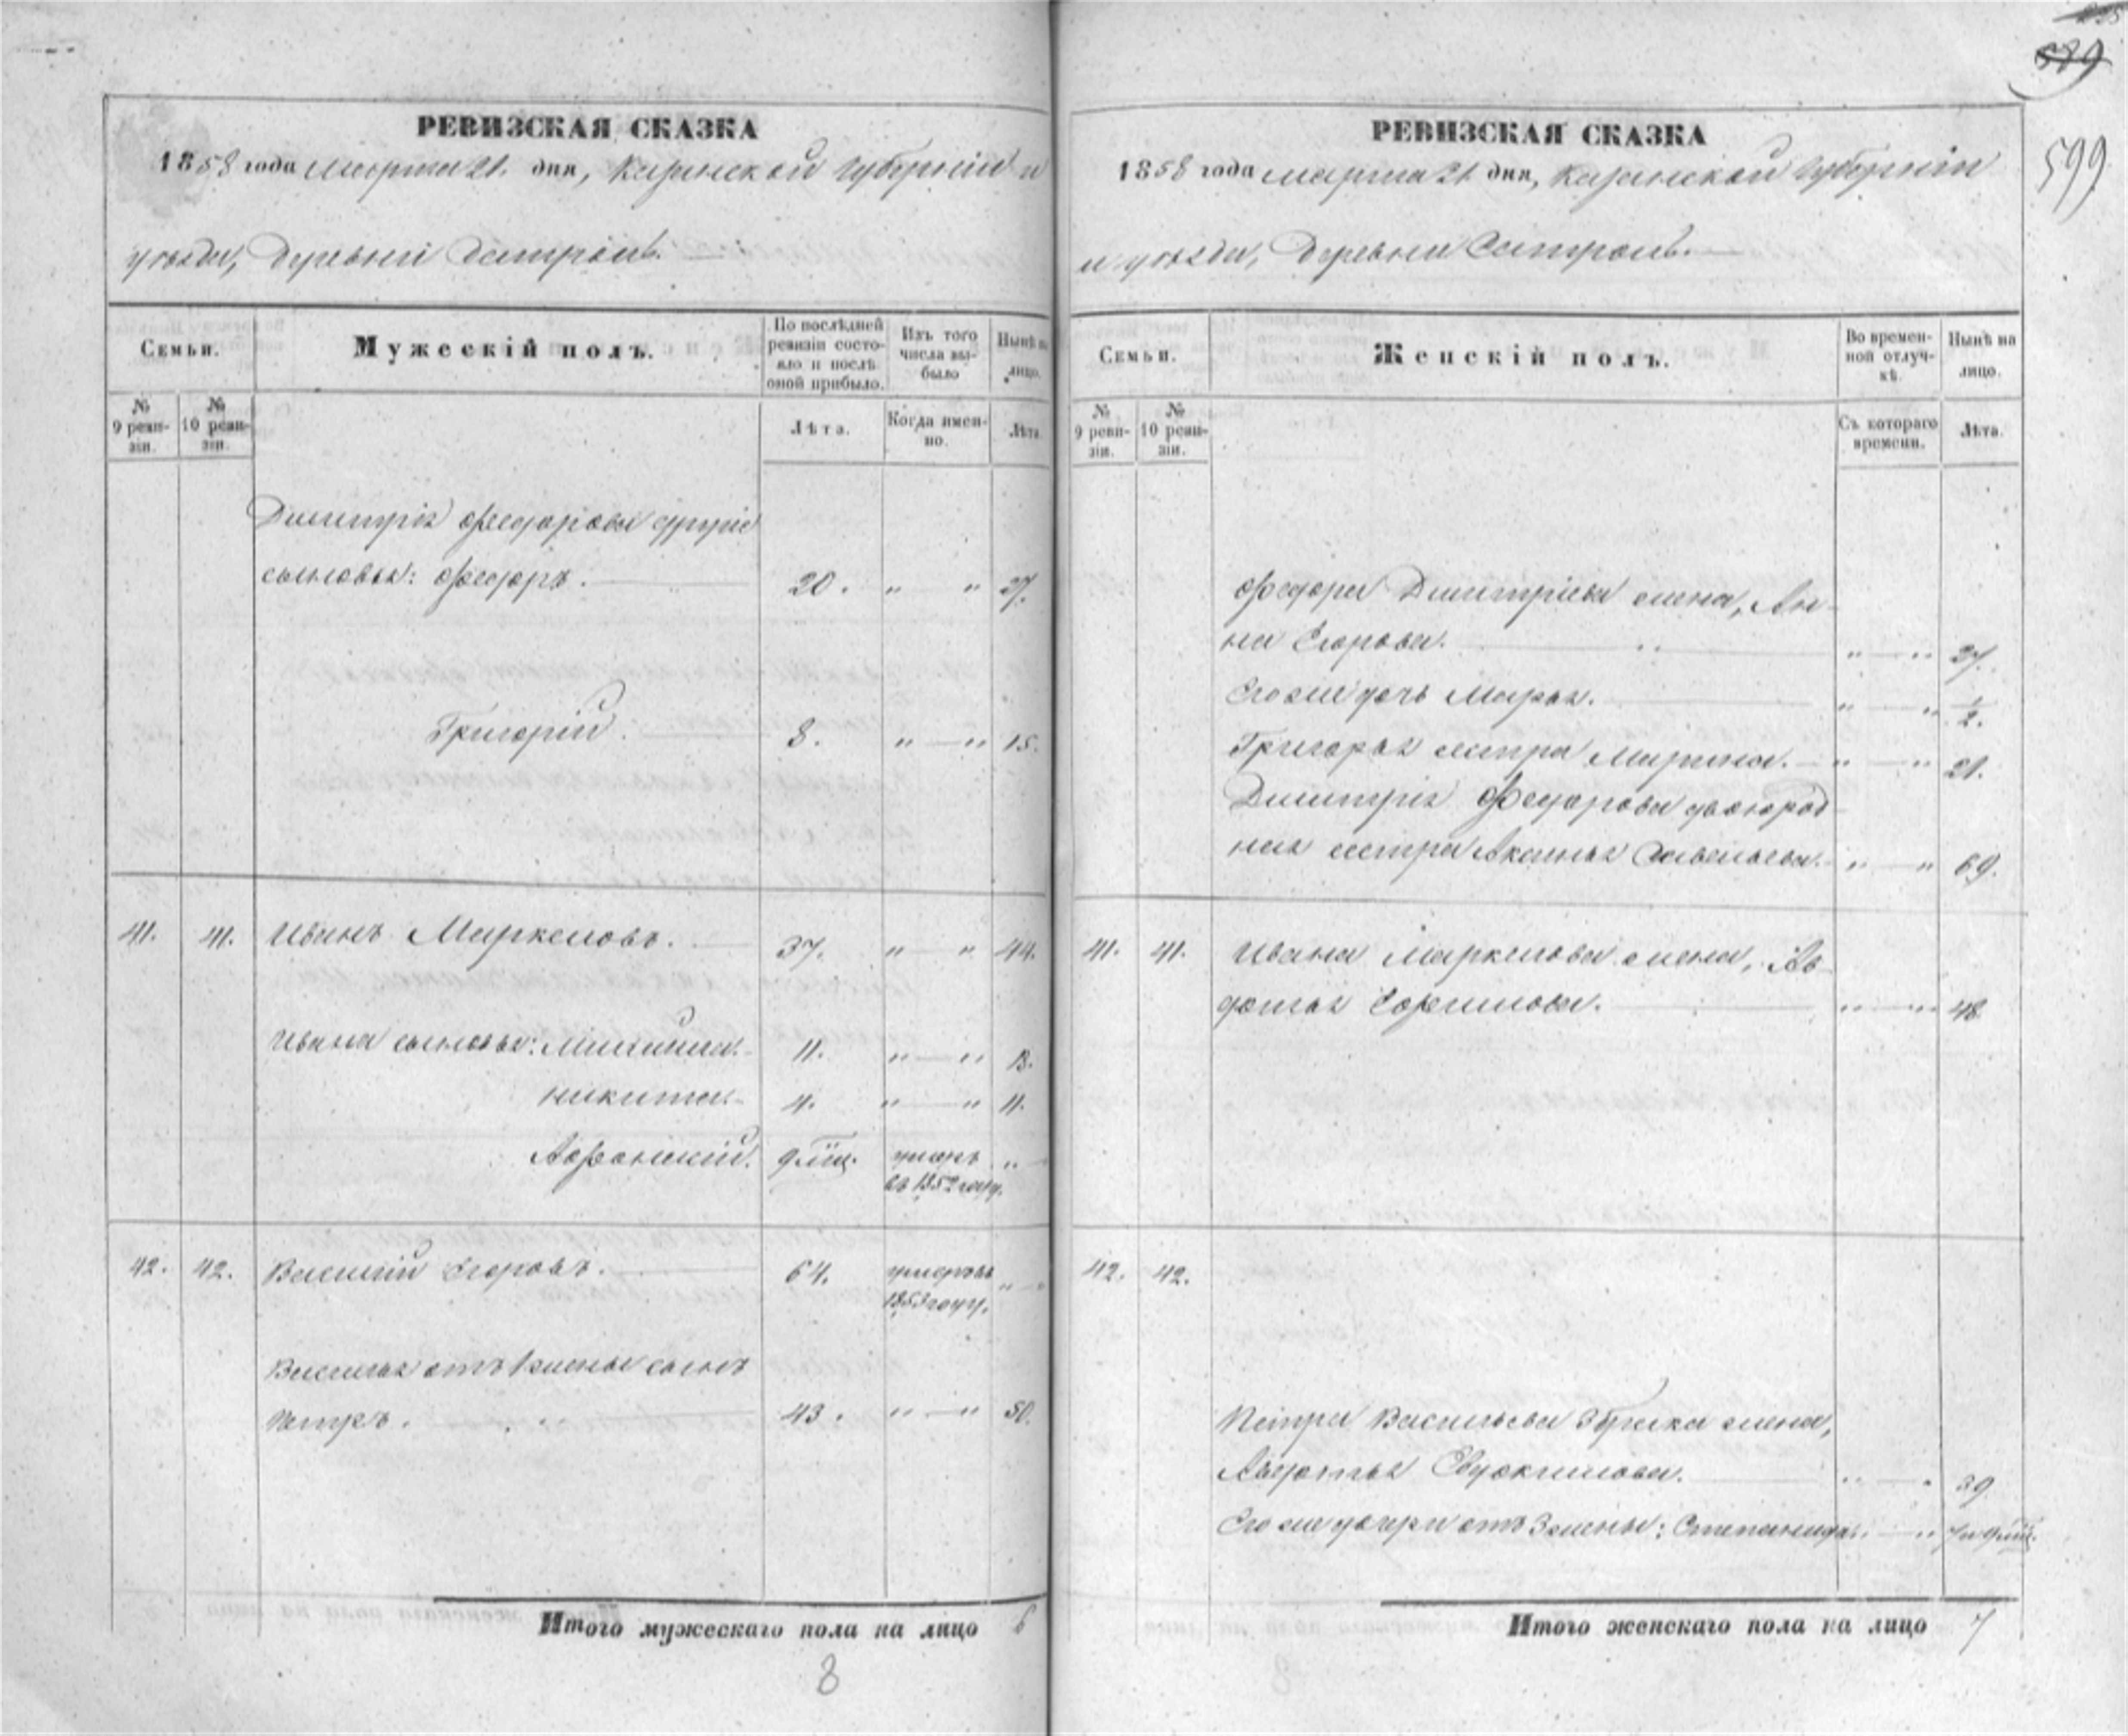 599
РЕВИЗСКАЯ СКАЗКА
1858 года марта 21 дня, Казанской губерніи и
уѣзда, Деревни
Семьи.
Мужескій полъ.
По послѣдней ревизіи состояло и послѣ оной прибыло.
Изъ того числа выбыло
Нынѣ на лицо.
№ 9 реви-зіи.
№ 10 реви-зіи.
Лѣта.
Когда имен-но.
Лѣта.
Димитрія Федорова другіе
сыновья: Федоръ. 20. " " 27.
Григорій. 8. " " 15.
41. 41. Иванъ Маркеловъ. 37. " " 44.
Ивана сыновья: 11. " "
Никита. 4. " " 11.
Афонасій. 9 мѣц. умеръ въ 1852 году. "
42. 42. Василій Егоровъ. 64. умеръ въ 1853 году. "
Василья отъ 1 жены сынъ
Петръ. 43. " " 50.
Итого мужескаго пола на лицо 6
8
РЕВИЗСКАЯ СКАЗКА
1858 года марта 21 дня, Казанской губерніи
и уѣзда, Деревни
Семьи.
Женскій полъ.
Во времен-ной отлуч-кѣ.
Нынѣ на лицо.
№ 9 реви-зіи.
№ 10 реви-зіи.
Съ котораго времени.
Лѣта.
Федора Димитріева жена, Ан-
на Егорова. " " 27.
Его же дочь Марья. " " 1/2.
Григорья сестра Марина. " " 21.
Димитрія Федорова двоюрод
ная сестра Акилина Савельева. " " 69.
41. 41. Ивана Маркелова жена, Ав-
дотья Ефимова. " " 48
42. 42.
Петра Васильева 3 брака жена,
Авдотья Евдокимова. " " 39
Его же дочери отъ 3 жены: Степанида. " "
Итого женскаго пола на лицо 7